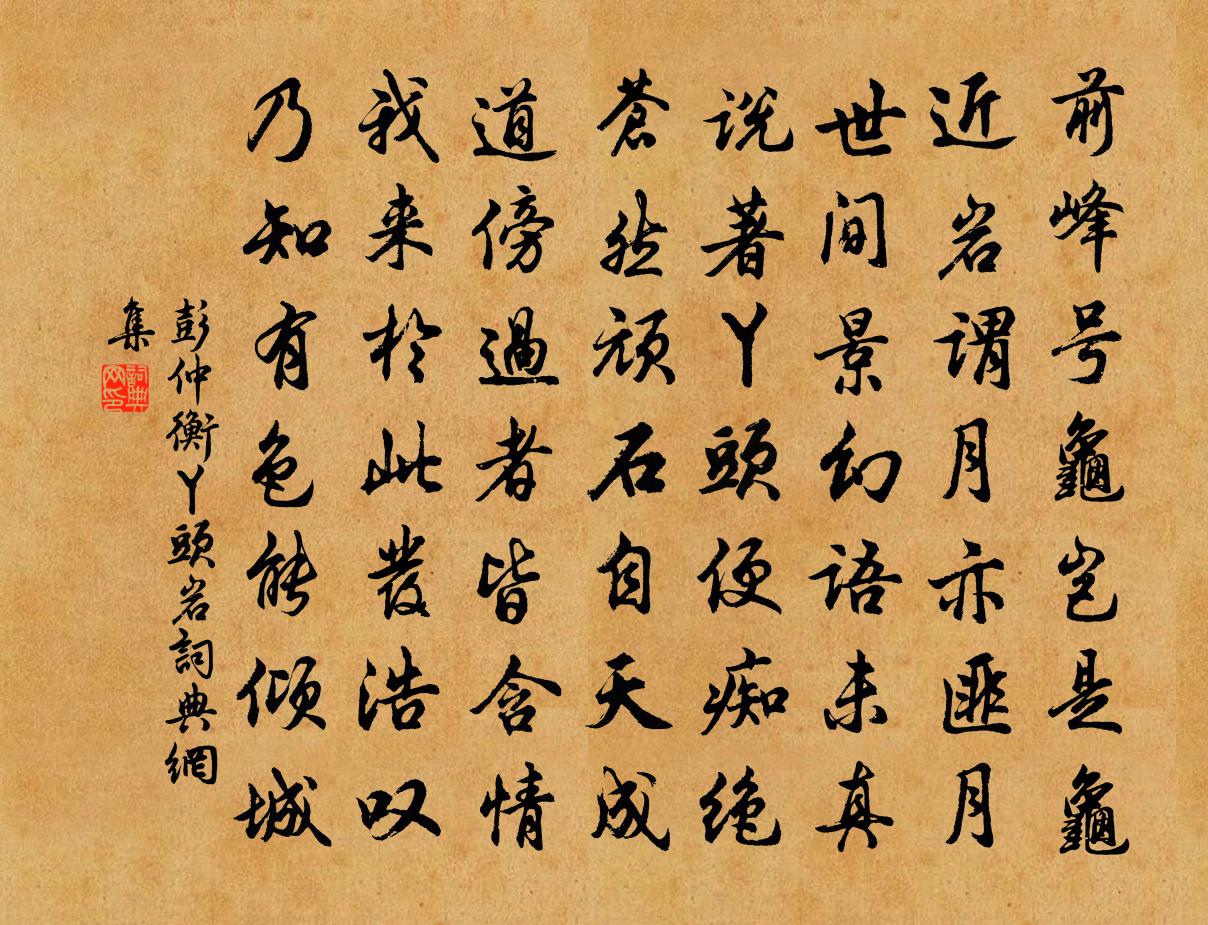 前峰号龜岂是龜
近岩謂月亦匪月
世间景幻語未真
说著丫頭便痴绝
蒼然頑石自天成
道傍過者皆含情
我来於此發浩叹
乃知有色能傾城
彭仲衡丫頭岩詞典網
集
詞典
网印